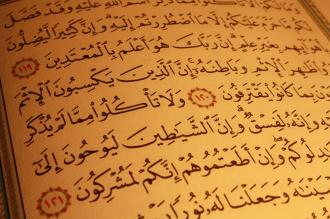 ذُكِرَ ٱسْمُ ٱللَّهِ عَلَيْهِ وَقَدْ فَصَّلَ
حَرَّمَ عَلَيْكُمْ إِلَّا مَا ٱضْطُرِرْتُمْ إِلَيْهِ وَإِنَّ كَثِيرًا لَّيُضِلُّونَ
بِغَيْرِ عِلْمٍ إِنَّ رَبَّكَ هُوَ أَعْلَمُ بِٱلْمُعْتَدِينَ ١١٩
ظَٰهِرَ ٱلْإِثْمِ وَبَاطِنَهُۥٓ إِنَّ ٱلَّذِينَ يَكْسِبُونَ ٱلْإِثْمَ
بِمَا كَانُوا۟ يَقْتَرِفُونَ ١٢٠ وَلَا تَأْكُلُوا۟ مِمَّا لَمْ يُذْكَرِ
وَإِنَّهُۥ لَفِسْقٌ وَإِنَّ ٱلشَّيَٰطِينَ لَيُوحُونَ إِلَىٰٓ
وَإِنْ أَطَعْتُمُوهُمْ إِنَّكُمْ لَمُشْرِكُونَ ١٢١
وَجَعَلْنَا لَهُۥ نُورًا